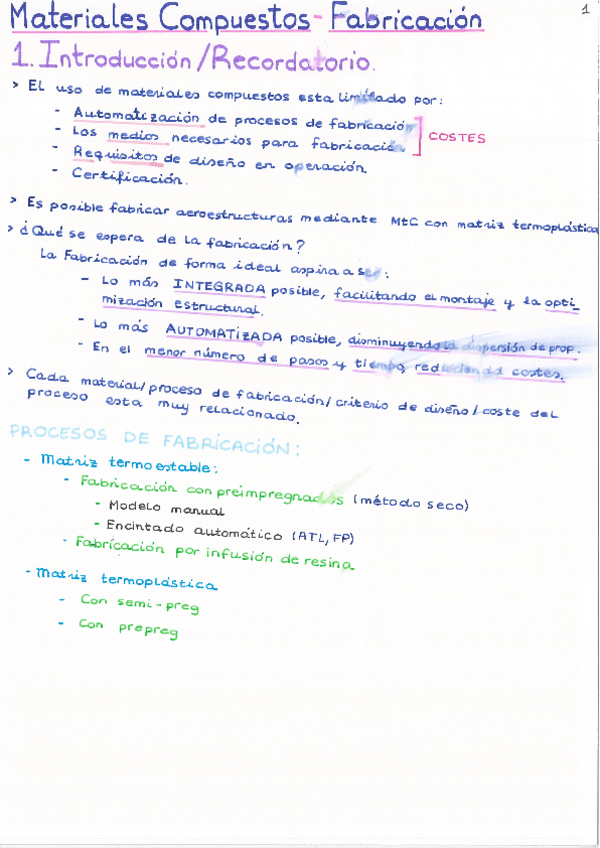 1
Materiales Compuestos - Fabricación
1. Introducción/Recordatorio.
> El uso de materiales compuestos esta limitado por:
- Automatización de procesos de fabricación
- Los medios necesarios para fabricación
COSTES
- Requisitos de diseño en operación.
- Certificación.
> Es posible fabricar aeroestructuras mediante MtC con matriz termoplástica
> ¿Qué se espera de la fabricación?
La Fabricación de forma ideal aspira a ser:
- Lo más INTEGRADA posible, facilitando el montaje y la opti_
mización estructural.
- Lo más AUTOMATIZADA posible, disminuyendo la dispersión de prop.
- En el menor número de pasos y tiempo, reduciendo costes.
> Cada material/proceso de fabricación/criterio de diseño/coste del
proceso esta muy relacionado.
PROCESOS DE FABRICACIÓN:
- Matriz termoestable:
- Fabricación con preimpregnados (método seco)
- Modelo manual
- Encintado automático (ATL, FP)
- Fabricación por infusión de resina
- Matriz termoplástica
- Con semi-preg
- Con prepreg